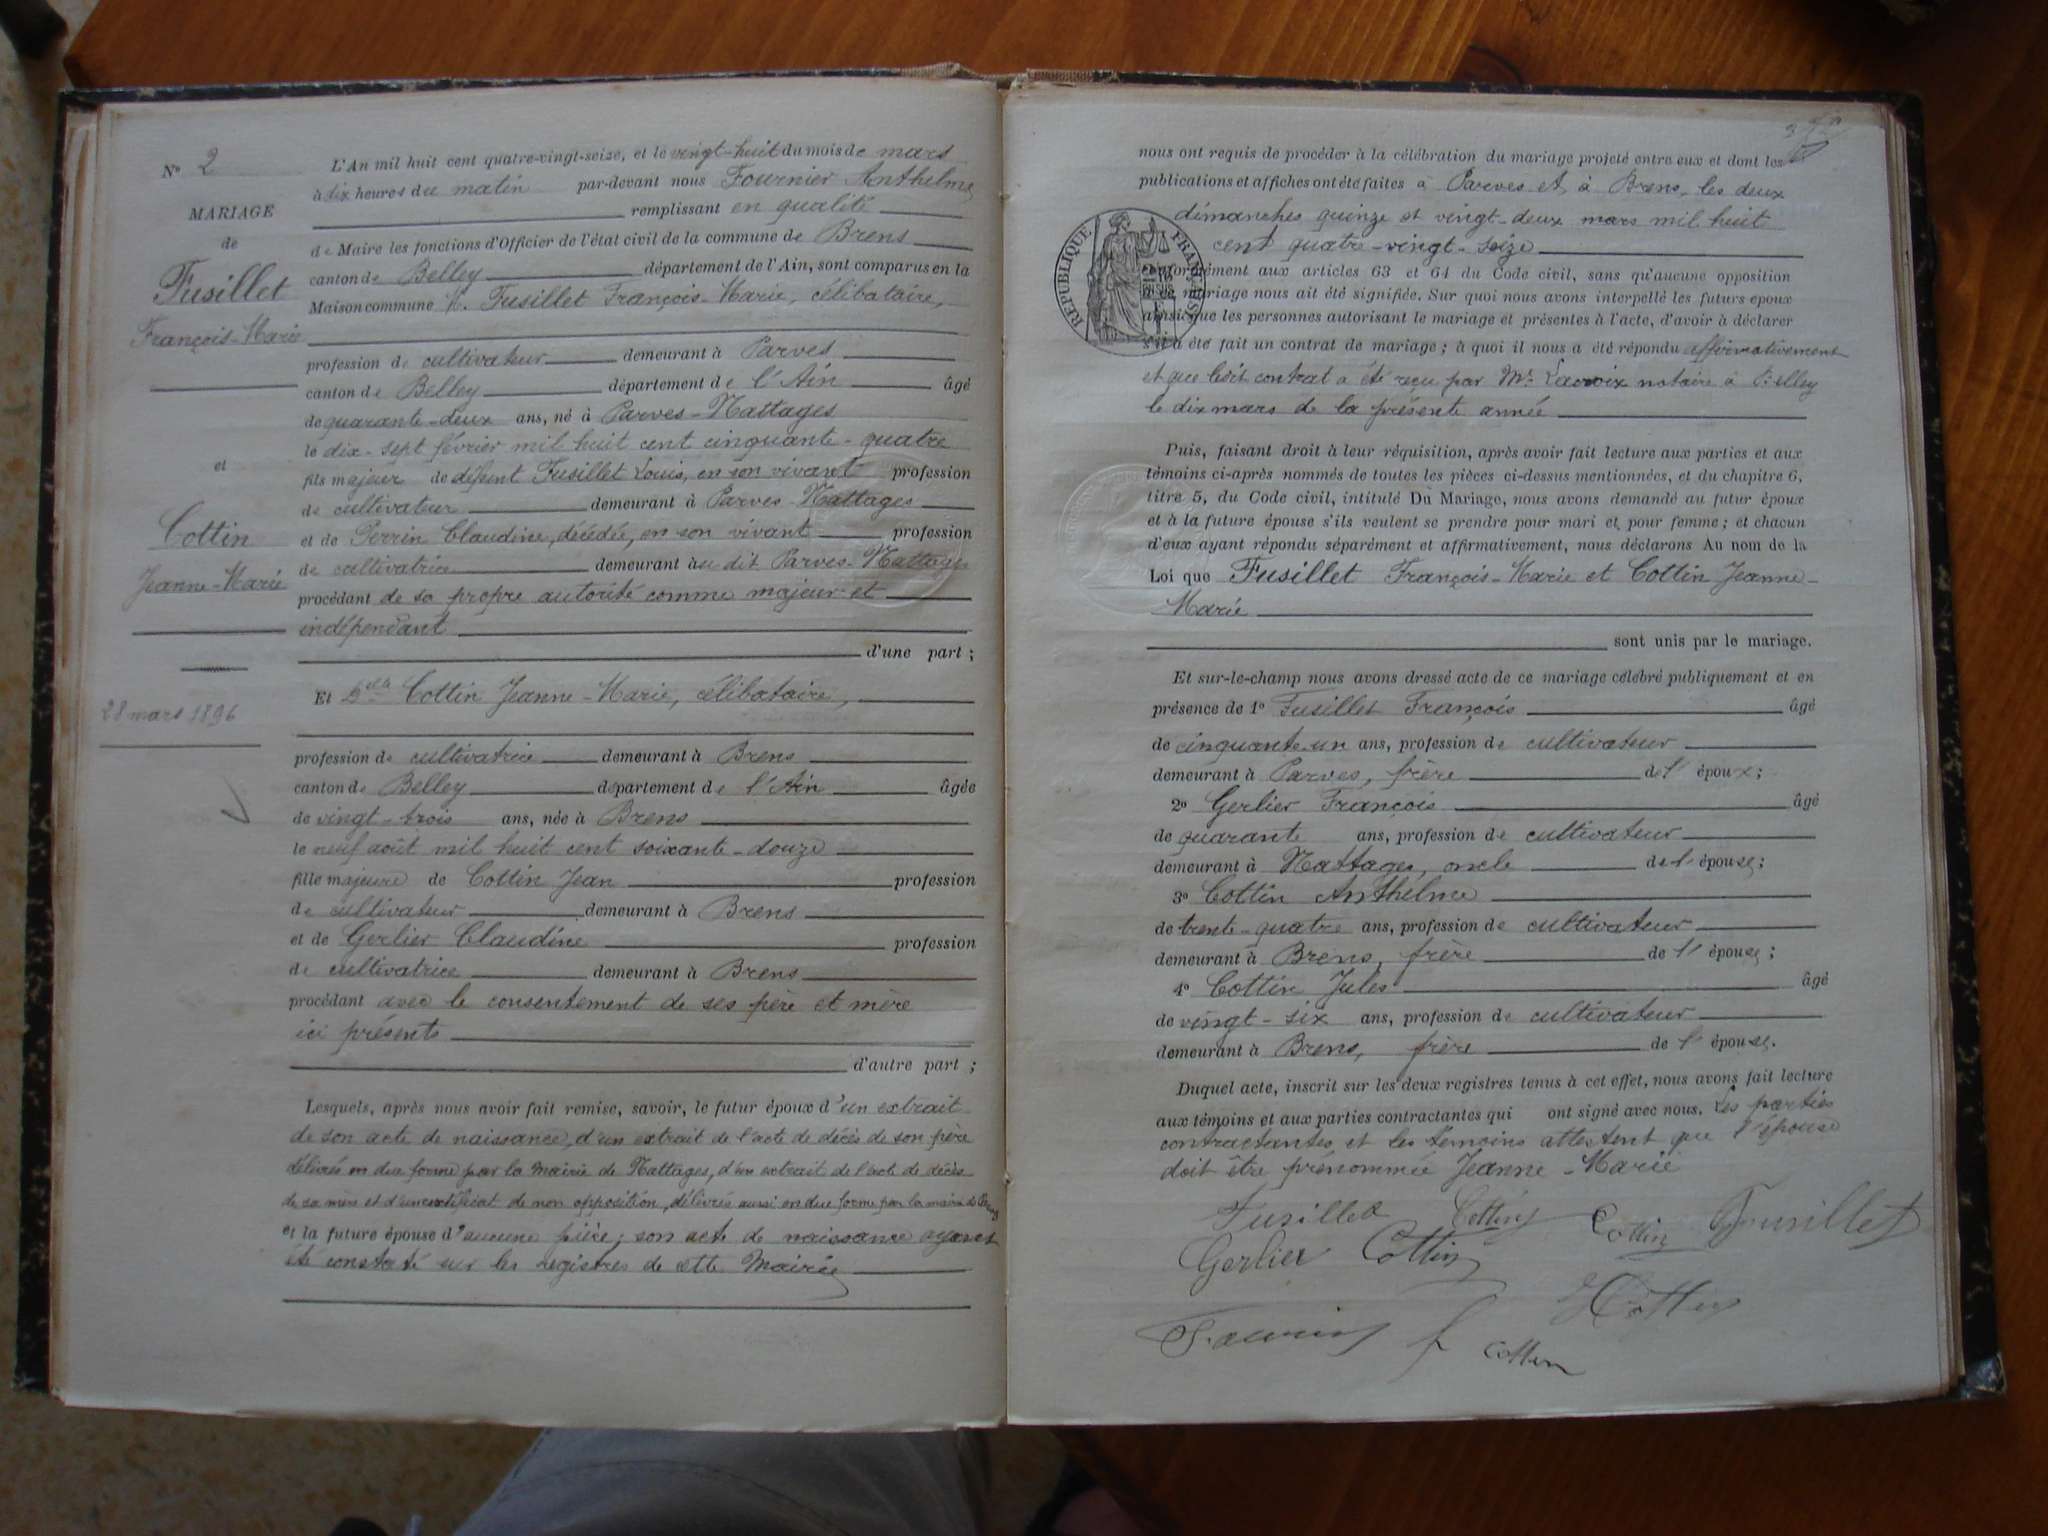 Nº 2
MARIAGE
de
Fusillet
François-Marie
et
Cottin
Jeanne-Marie
28 mars 1896
L'An mil huit cent quatre-vingt-seize, et le vingt-huit du mois de mars
à dix heures du matin par-devant nous Fournier Anthelme
remplissant en qualité
de Maire les fonctions d'Officier de l'état civil de la commune de Brens
canton de Belley département de l'Ain, sont comparus en la
Maison commune M. Fusillet François-Marie, célibataire,
profession de cultivateur demeurant à Parves
canton de Belley département de l'Ain âgé
de quarante-deux ans, né à Parves-Nattages
le dix-sept février mil huit cent cinquante-quatre
fils majeur de défunt Fusillet Louis, en son vivant profession
de cultivateur demeurant à Parves-Nattages
et de Perrin Claudine, décédée, en son vivant profession
de cultivatrice demeurant au dit Parves-Nattages
procédant de sa propre autorité comme majeur et
indépendant
d'une part ;
Et Delle Cottin Jeanne-Marie, célibataire,
profession de cultivatrice demeurant à Brens
canton de Belley département de l'Ain âgée
de vingt-trois ans, née à Brens
le neuf août mil huit cent soixante-douze
fille majeure de Cottin Jean profession
de cultivateur demeurant à Brens
et de Gerlier Claudine profession
de cultivatrice demeurant à Brens
procédant avec le consentement de ses père et mère
ici présents
d'autre part ;
Lesquels, après nous avoir fait remise, savoir, le futur époux d'un extrait
de son acte de naissance, d'un extrait de l'acte de décès de son père
délivrés en due forme par la mairie de Nattages, d'un extrait de l'acte de décès
de sa mère et d'un certificat de non opposition, délivrés aussi en due forme par la mairie de Parves
et la future épouse d'aucune pièce ; son acte de naissance ayant
été constaté sur les registres de cette Mairie
nous ont requis de procéder à la célébration du mariage projeté entre eux et dont les
publications et affiches ont été faites à Parves et à Brens, les deux
dimanches quinze et vingt-deux mars mil huit
cent quatre-vingt-seize
RÉPUBLIQUE FRANÇAISE
conformément aux articles 63 et 64 du Code civil, sans qu'aucune opposition
à ce mariage nous ait été signifiée. Sur quoi nous avons interpellé les futurs époux
ainsi que les personnes autorisant le mariage et présentes à l'acte, d'avoir à déclarer
s'il a été fait un contrat de mariage ; à quoi il nous a été répondu affirmativement
et que ledit contrat a été reçu par Me Lacroix notaire à Belley
le dix mars de la présente année
Puis, faisant droit à leur réquisition, après avoir fait lecture aux parties et aux
témoins ci-après nommés de toutes les pièces ci-dessus mentionnées, et du chapitre 6,
titre 5, du Code civil, intitulé Du Mariage, nous avons demandé au futur époux
et à la future épouse s'ils veulent se prendre pour mari et pour femme ; et chacun
d'eux ayant répondu séparément et affirmativement, nous déclarons Au nom de la
Loi que Fusillet François-Marie et Cottin Jeanne-
Marie
sont unis par le mariage.
Et sur-le-champ nous avons dressé acte de ce mariage célébré publiquement et en
présence de 1º Fusillet François âgé
de cinquante-un ans, profession de cultivateur
demeurant à Parves, frère de l'époux ;
2º Gerlier François âgé
de quarante ans, profession de cultivateur
demeurant à Nattages, oncle de l'épouse ;
3º Cottin Anthelme
de trente-quatre ans, profession de cultivateur
demeurant à Brens, frère de l'épouse ;
4º Cottin Jules âgé
de vingt-six ans, profession de cultivateur
demeurant à Brens, frère de l'épouse.
Duquel acte, inscrit sur les deux registres tenus à cet effet, nous avons fait lecture
aux témoins et aux parties contractantes qui ont signé avec nous. Les parties
contractantes et les témoins attestent que l'épouse
doit être prénommée Jeanne-Marie
Fusillet Cottin Cottin Fusillet
Gerlier Cottin
Cottin
Cottin